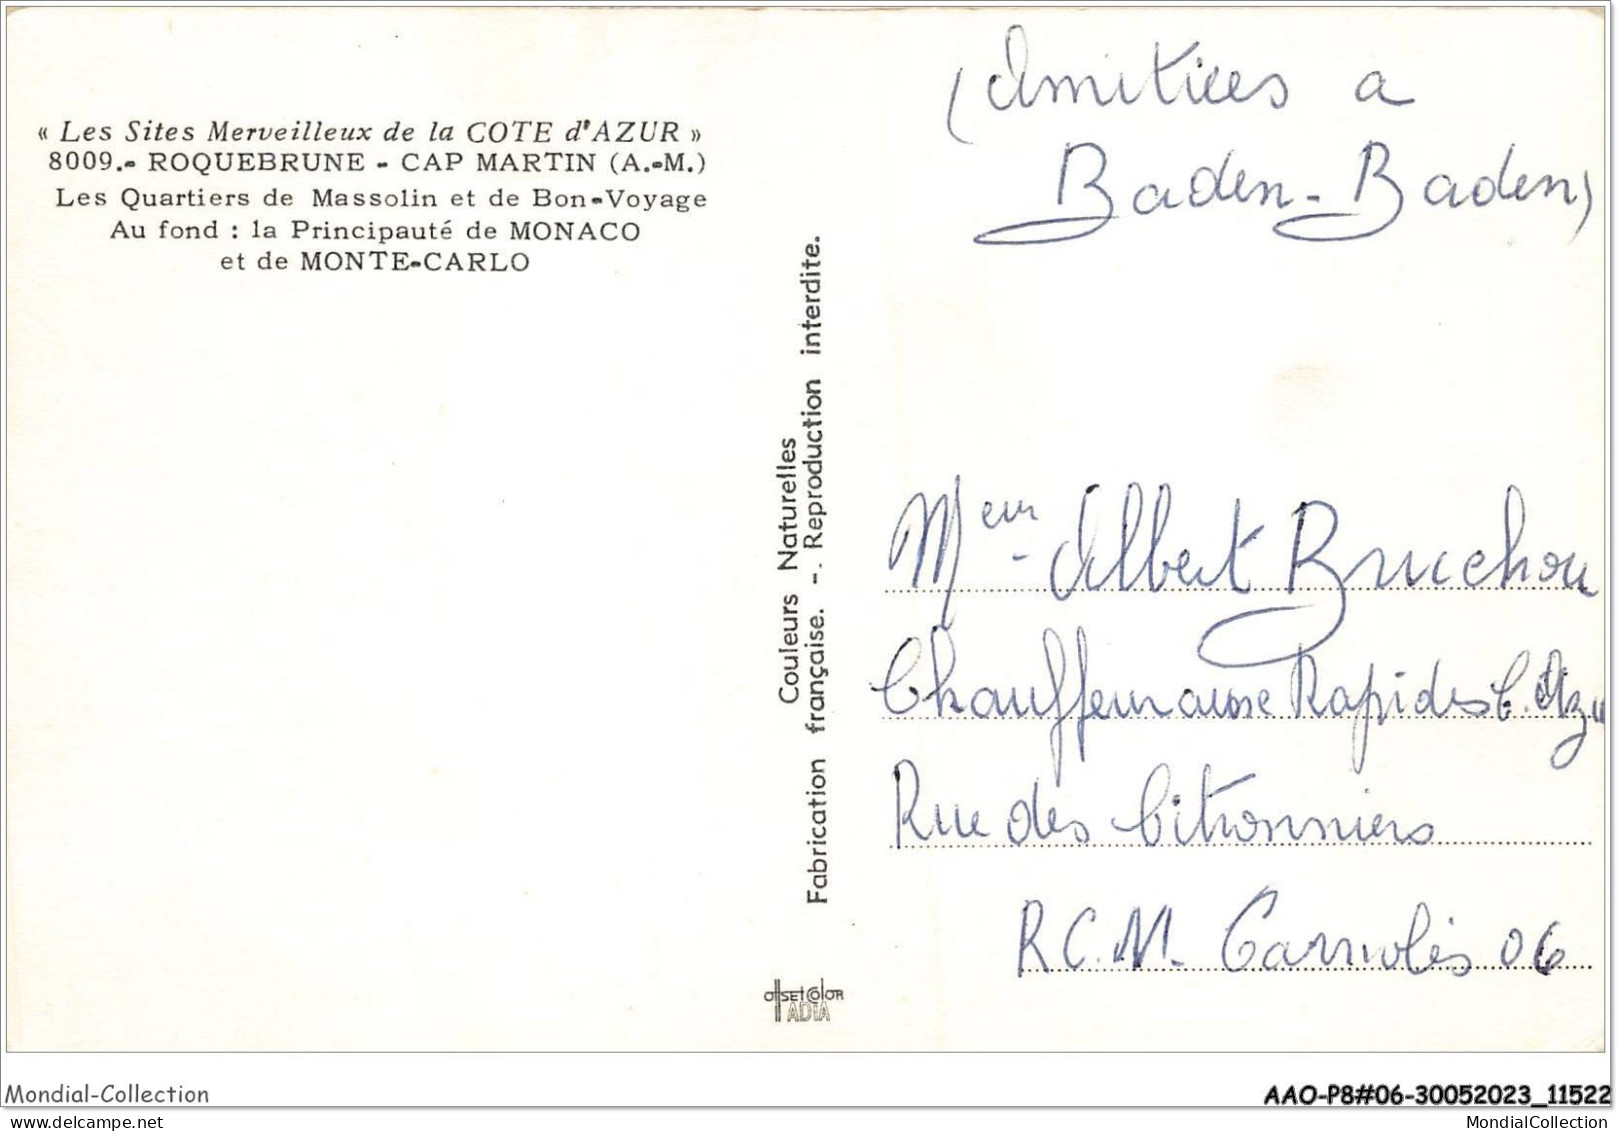 « Les Sites Merveilleux de la COTE d'AZUR »
8009.- ROQUEBRUNE - CAP MARTIN (A.-M.)
Les Quartiers de Massolin et de Bon-Voyage
Au fond : la Principauté de MONACO
et de MONTE-CARLO
Couleurs Naturelles
Fabrication française. -. Reproduction interdite.
OffSEt COlOR
IADIA
(Amitiées a
Baden-Baden)
Meur - Albert Bruchou
Chauffeur Rapides C. Azu
Rue des Citronniers
R C. M. Carnolès 06
Mondial-Collection
AAO-P8#06-30052023_11522
MondialCollection